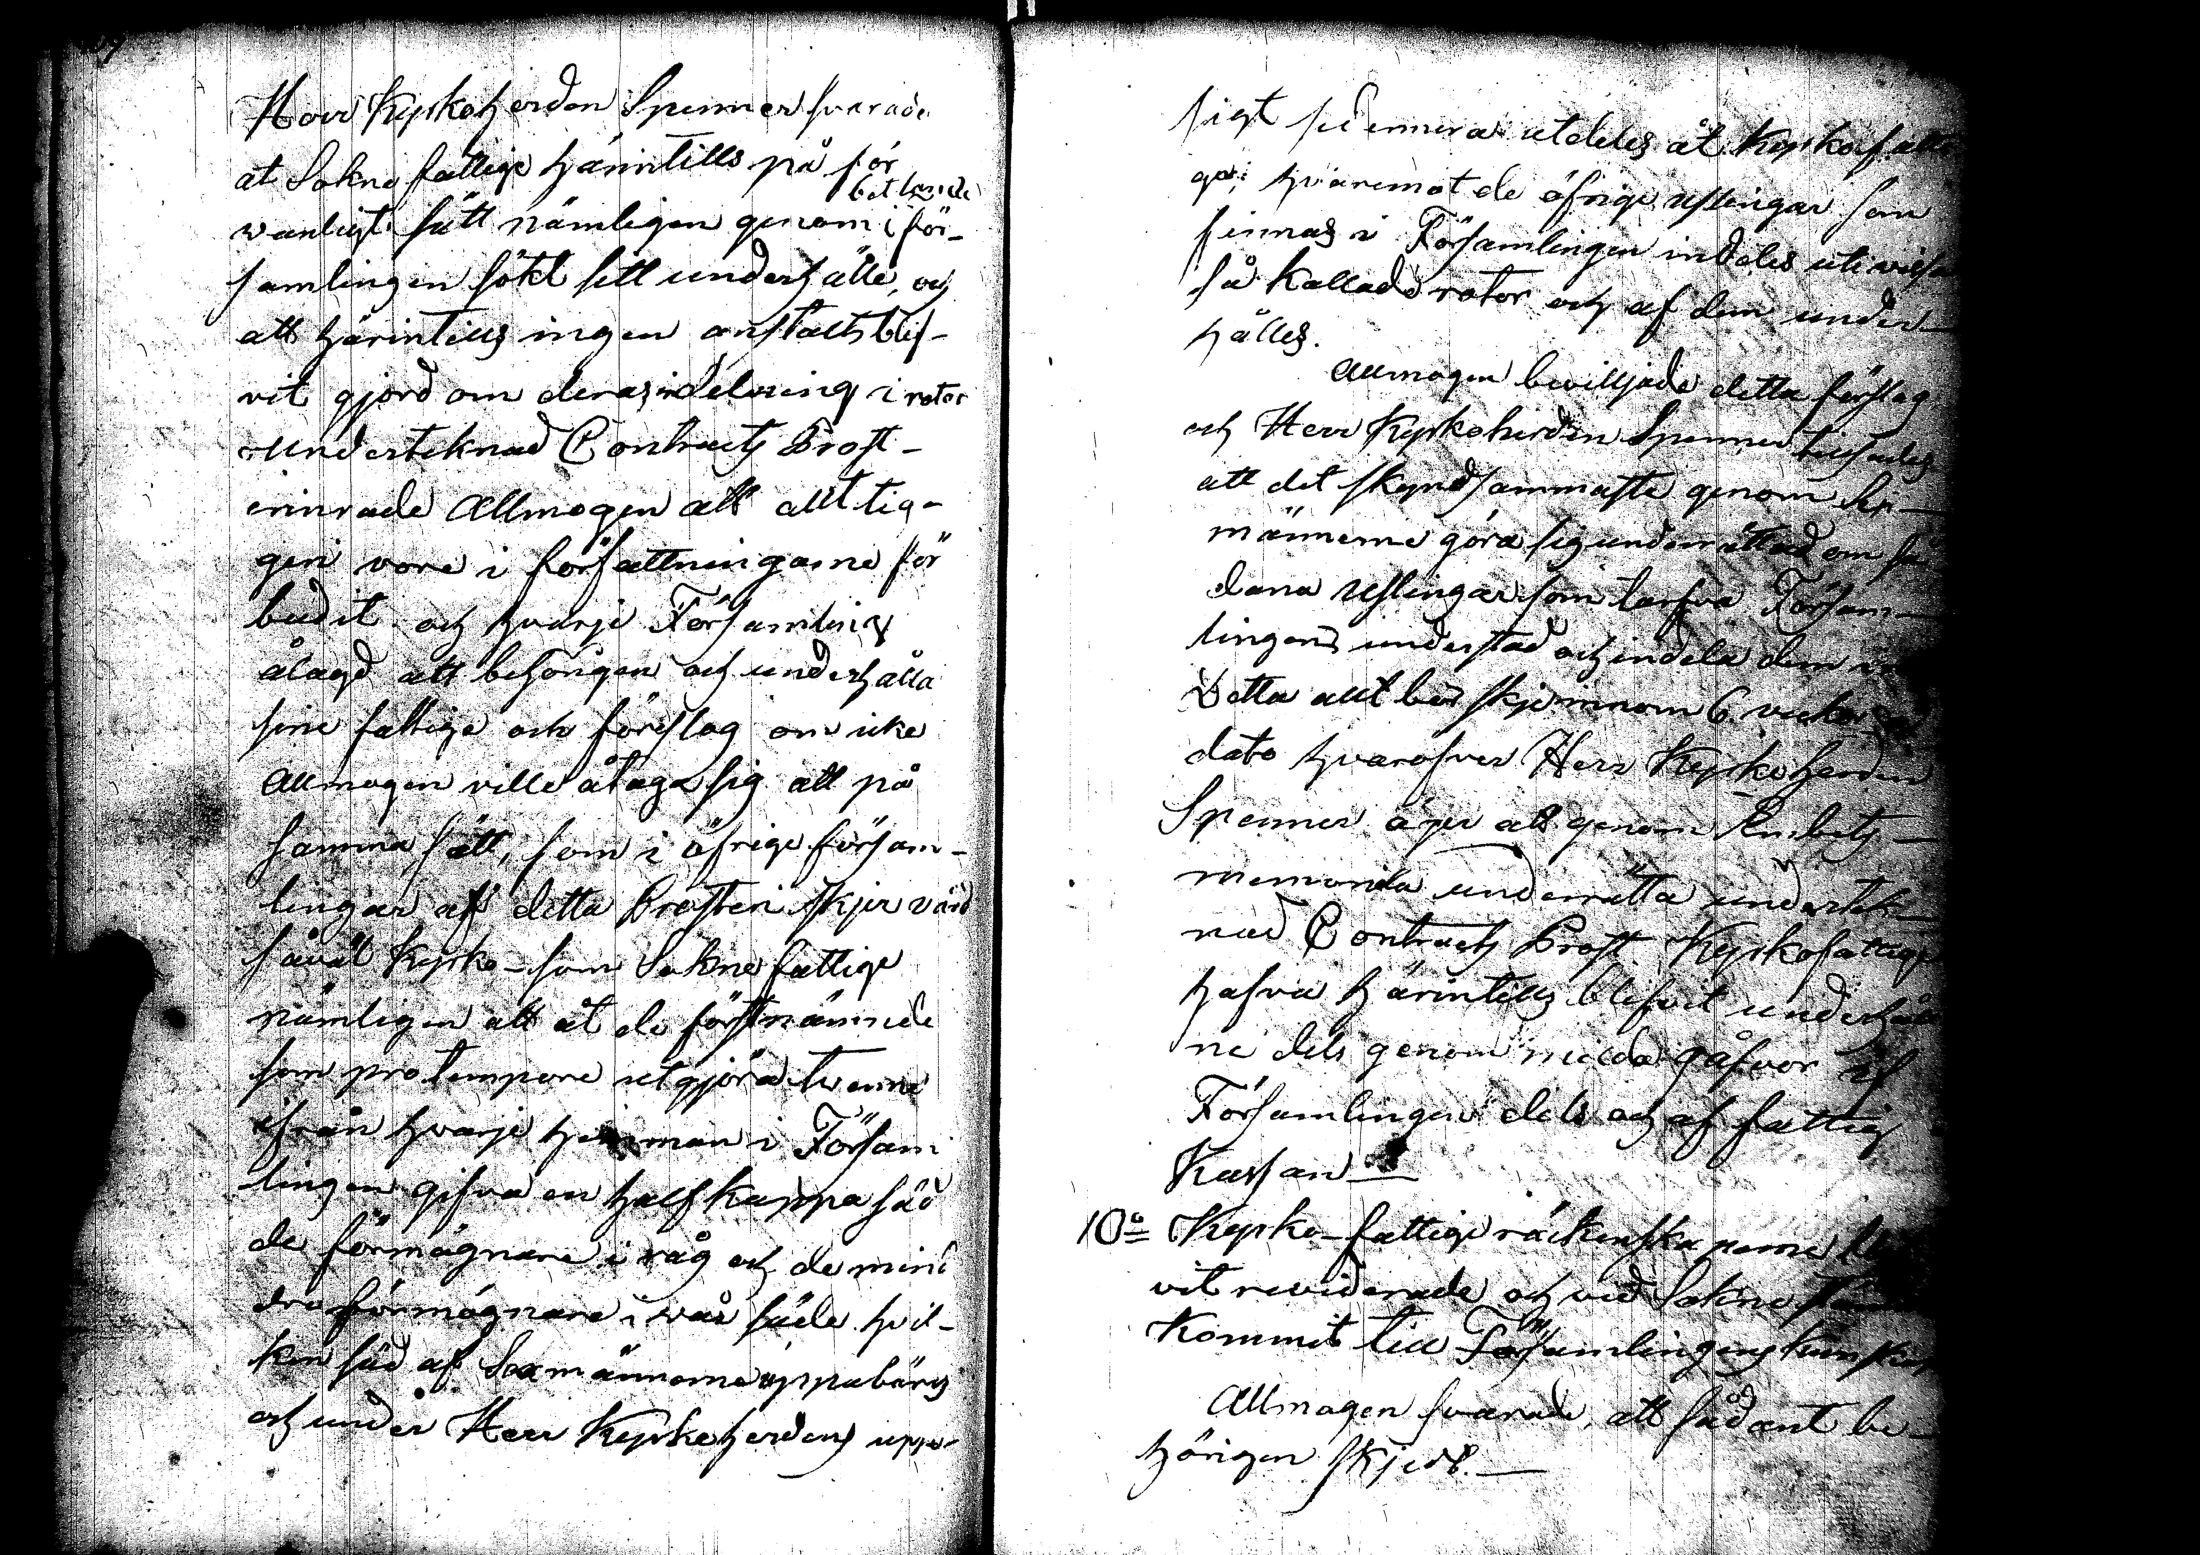 Herr Kyrkoherden Spenner svarade
at Sokne fattige härintills på för
betlande
wanligt sätt nämligen genom i för-
samlingen sökt sitt underhålle, och
att härintills ingen anstalts blif-
vit gjord om deras indelning i rotor
Underteknad Contracts Prost-
erinrade Allmogen att allt tig-
geri vore i författningarne för
budit och hvarje Församling
ålagd att behörigen och underhålla
sine fattige och förslog om icke
Allmogen ville åtaga sig att på
samma sätt, som i öfrige försam-
lingar af detta Prosteri skjer vård
såväl Kyrko- som Sokne fattige
nämligen att åt de förstnämnde
som pro tempore utgjöra tvenne
ifrån hvarje hemman i Försam
lingen gifva en half kappa säd
de förmögnare i råg och de mind
dre förmögnare i vår säde hvil-
ken säd af Sexmännerne uppubärs
och under Herr Kyrkoherdens upp-
sigt sedermera utdeles åt Kyrkofatti
ga; hvaremot de öfrige uslingar som
finnas i Församlingen indeles uti vissa
så kallade rotor och af dem under-
hålles.
Allmogen bevilljade detta förslag
och Herr Kyrkoherden Spenner tillsades
att det skyndsammaste genom Sex-
männerne göra sig underrättad om så
dana Uslingar som tarfva Försam-
lingens understöd och indela dem
Detta allt bör skje innom 6 veckor
dato hvaröfver Herr Kyrkoherden
Spenner äger att genom Embets-
memorial underrätta undertek-
nad Contracts Prost. Kyrkofattige
hafva härintills blifvit underhåll
ne dels genom milda gåfvor af
Församlingen dels och af fattig
Kassan
10o Kyrko-fattige räckenskaperne
vit reviderade och vid Sokne
Kommit till Församlingens kunskap
Allmogen svarade, att sådant be-
hörigen skjedt.